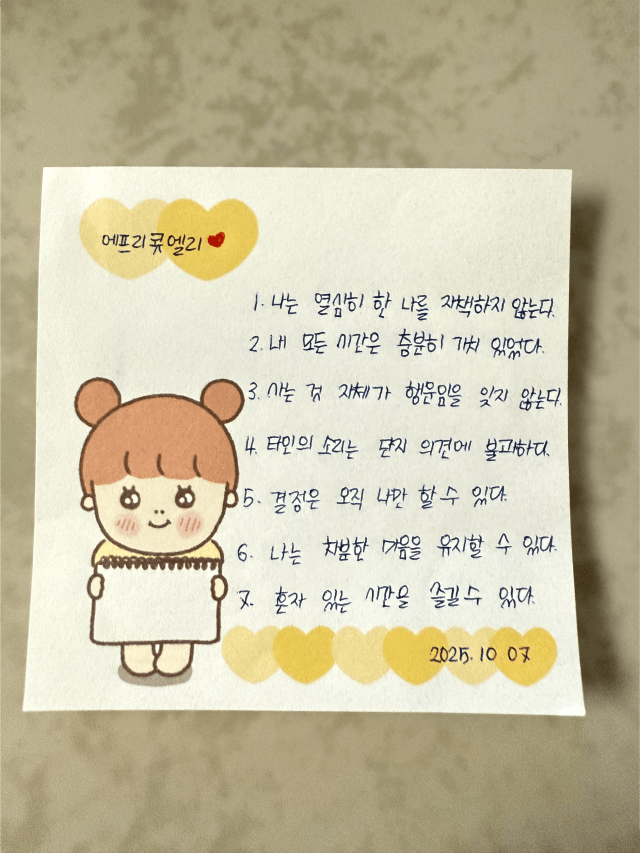 에프리콧엘리
1. 나는 열심히 한 나를 자책하지 않는다.
2. 내 모든 시간은 충분히 가치 있었다.
3. 사는 것 자체가 행운임을 잊지 않는다.
4. 타인의 소리는 단지 의견에 불과하다.
5. 결정은 오직 나만 할 수 있다.
6. 나는 차분한 마음을 유지할 수 있다.
7. 혼자 있는 시간을 즐길 수 있다.
2025. 10. 07